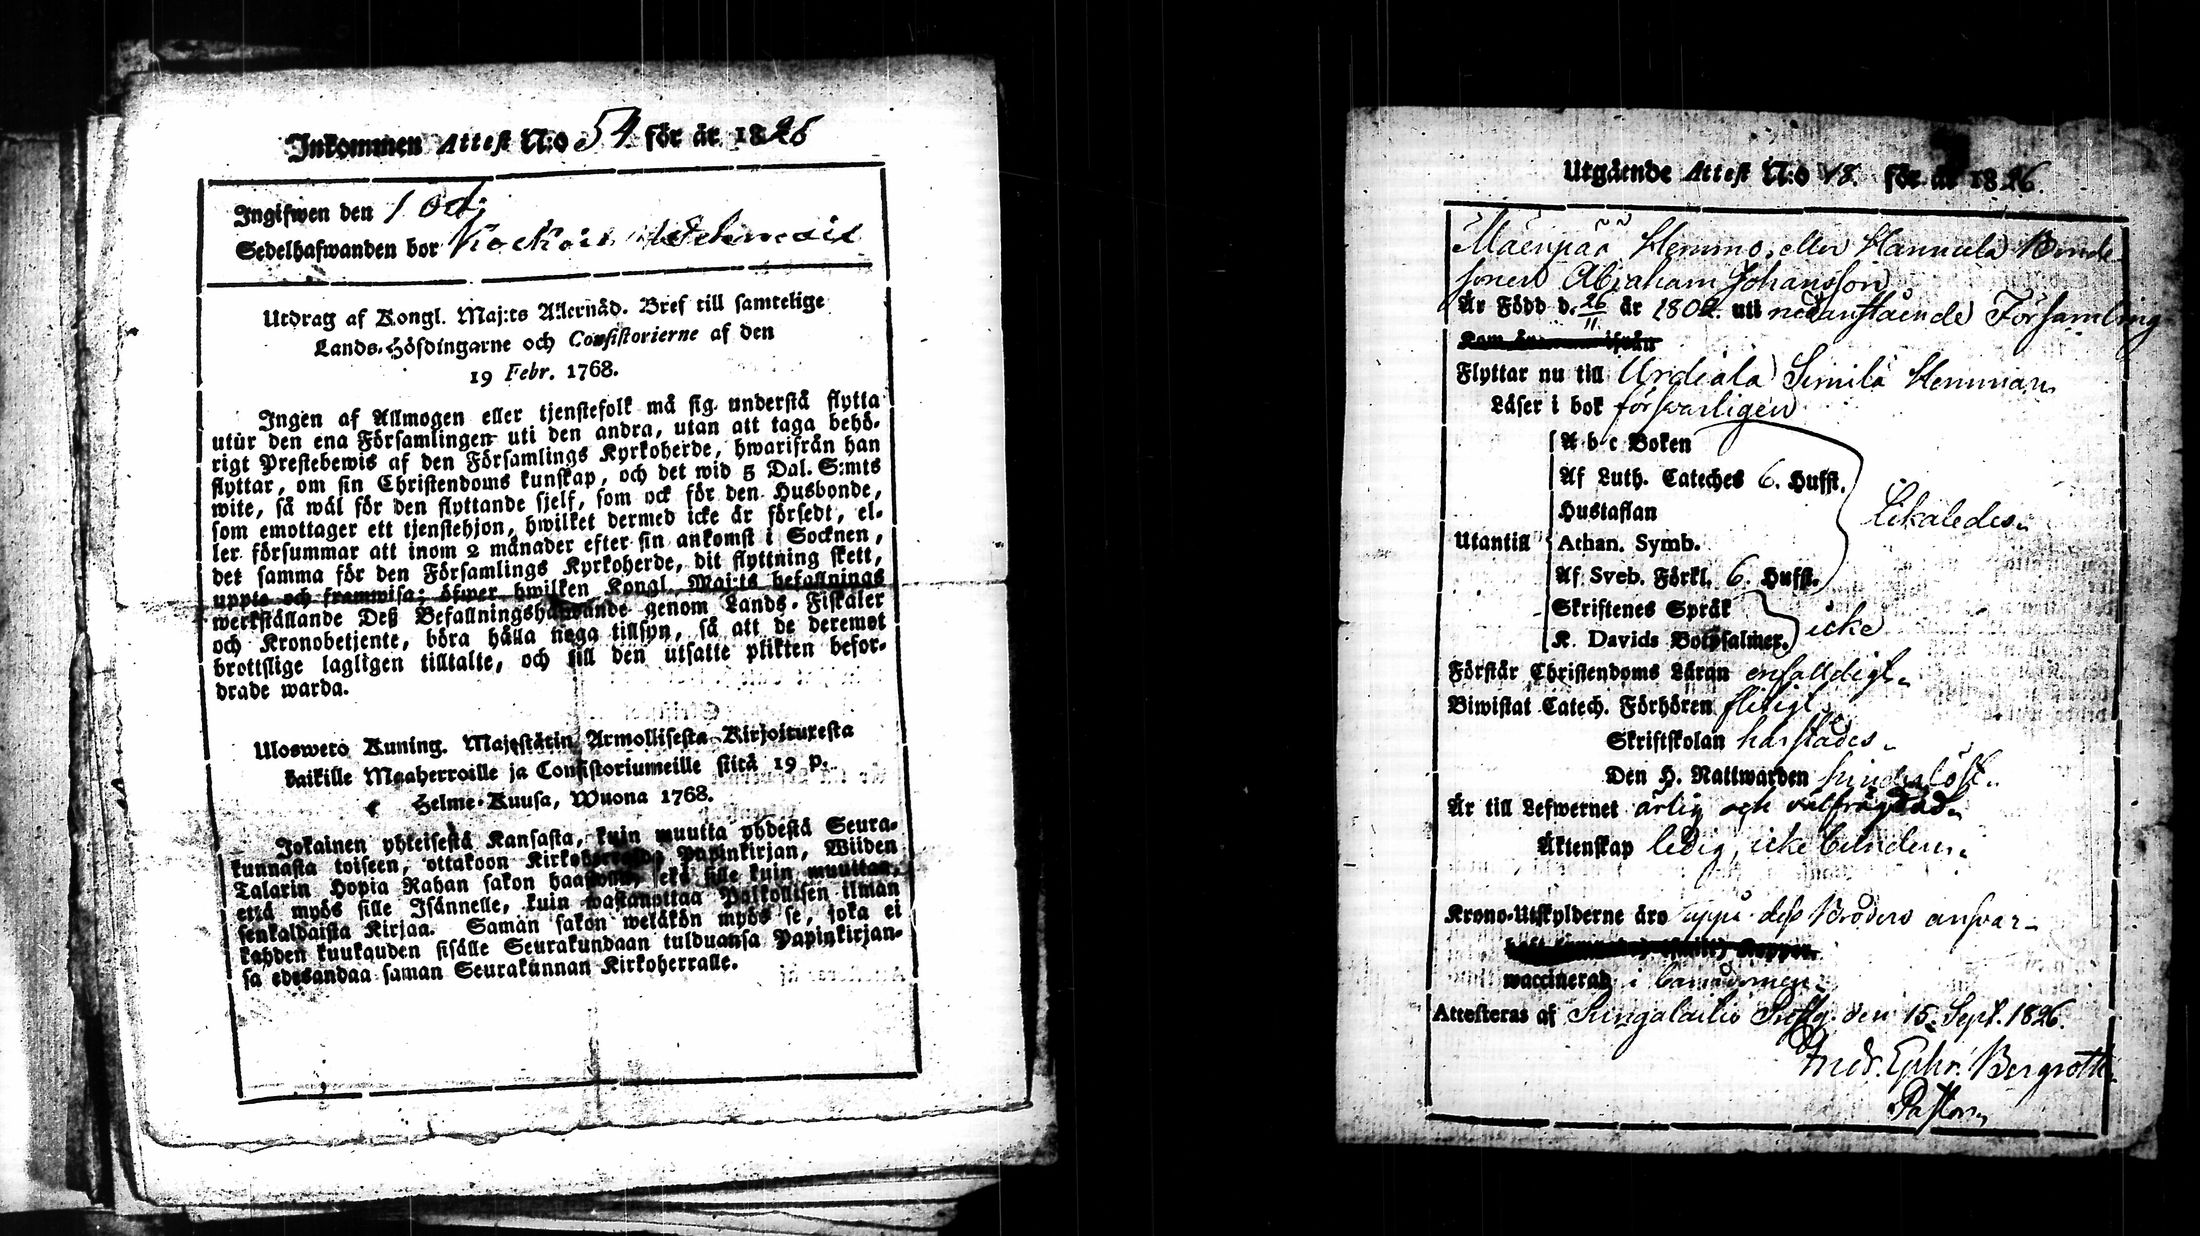 Inkommen Attest N:o 54 för år 1826
Ingifwen den 1 Oct.
Sedelhafwanden bor
Utdrag af Kongl. Maj:ts Allernåd. Bref till samtelige
Lands-Höfdingarne och Consistorierne af den
19 Febr. 1768.
Ingen af Allmogen eller tjenstefolk må sig understå flytta
utur den ena Församlingen uti den andra, utan att taga behö-
rigt Prestebewis af den Församlings Kyrkoherde, hwarifrån han
flyttar, om sin Christendoms kunskap, och det wid 5 Dal. S:mts
wite, så wäl för den flyttande sjelf, som ock för den Husbonde,
som emottager ett tjenstehjon, hwilket dermed icke är försedt, el-
ler försummar att inom 2 månader efter sin ankomst i Socknen,
det samma för den Församlings Kyrkoherde, dit flyttning skett,
uppte och framwisa; öfwer hwilken Kongl. Maj:ts befallnings
werkställande Deß Befallningshafwande genom Lands-Fiskaler
och Kronobetjente, böra hålla noga tillsyn, så att de deremot
brottslige lagligen tilltalte, och till den utsatte plikten befor-
drade warda.
Uloswero Kuning. Majestätin Armollisesta Kirjoituxesta
kaikille Maaherroille ja Consistoriumeille siitä 19 p.
Helme-Kuusa, Wuona 1768.
Jokainen yhteisestä Kansasta, kuin muutta yhdestä Seura-
kunnasta toiseen, ottakoon Kirkoherralda Papinkirjan, Wiiden
Talarin Hopia Rahan sakon haastolla, sekä sille kuin muuttaa,
että myös sille Isännelle, kuin wastanottaa Palkollisen ilman
senkaldaista Kirjaa. Saman sakon wetäkön myös se, joka ei
kahden kuukauden sisälle Seurakundaan tulduansa Papinkirjan-
sa edesandaa saman Seurakunnan Kirkoherralle.
Utgående Attest N:o 48. för år 1826
Mäenpää Hemmo, eller Hannula Bonde
sonen Abraham Johansson
Är Född d. 26/11 år 1802. uti nedanstående Församling
Kom år ifrån
Flyttar nu till Urdiala Simila Hemman
Läser i bok försvarligen
A b c Boken
Af Luth. Cateches 6. Hufst.
Hustaflan
Utantill Athan. Symb.
Af Sveb. Förkl. 6. Hufst.
Likaledes
Skriftenes Språk
K. Davids Botpsalmer.
icke
Förstår Christendoms Läran enfalldigt
Biwistat Catech. Förhören flitigt
Skriftskolan härstädes
Den H. Nattwarden
Är till Lefwernet ärlig och välfrägdad
Äktenskap ledig, icke bunden
Krono-Utskylderne äro uppå dess Broders ansvar
Koppor.
waccinerad i barndomen
Attesteras af Pastor den 15. Sept. 1826.
And. Ephr. Bergroth
Pastor